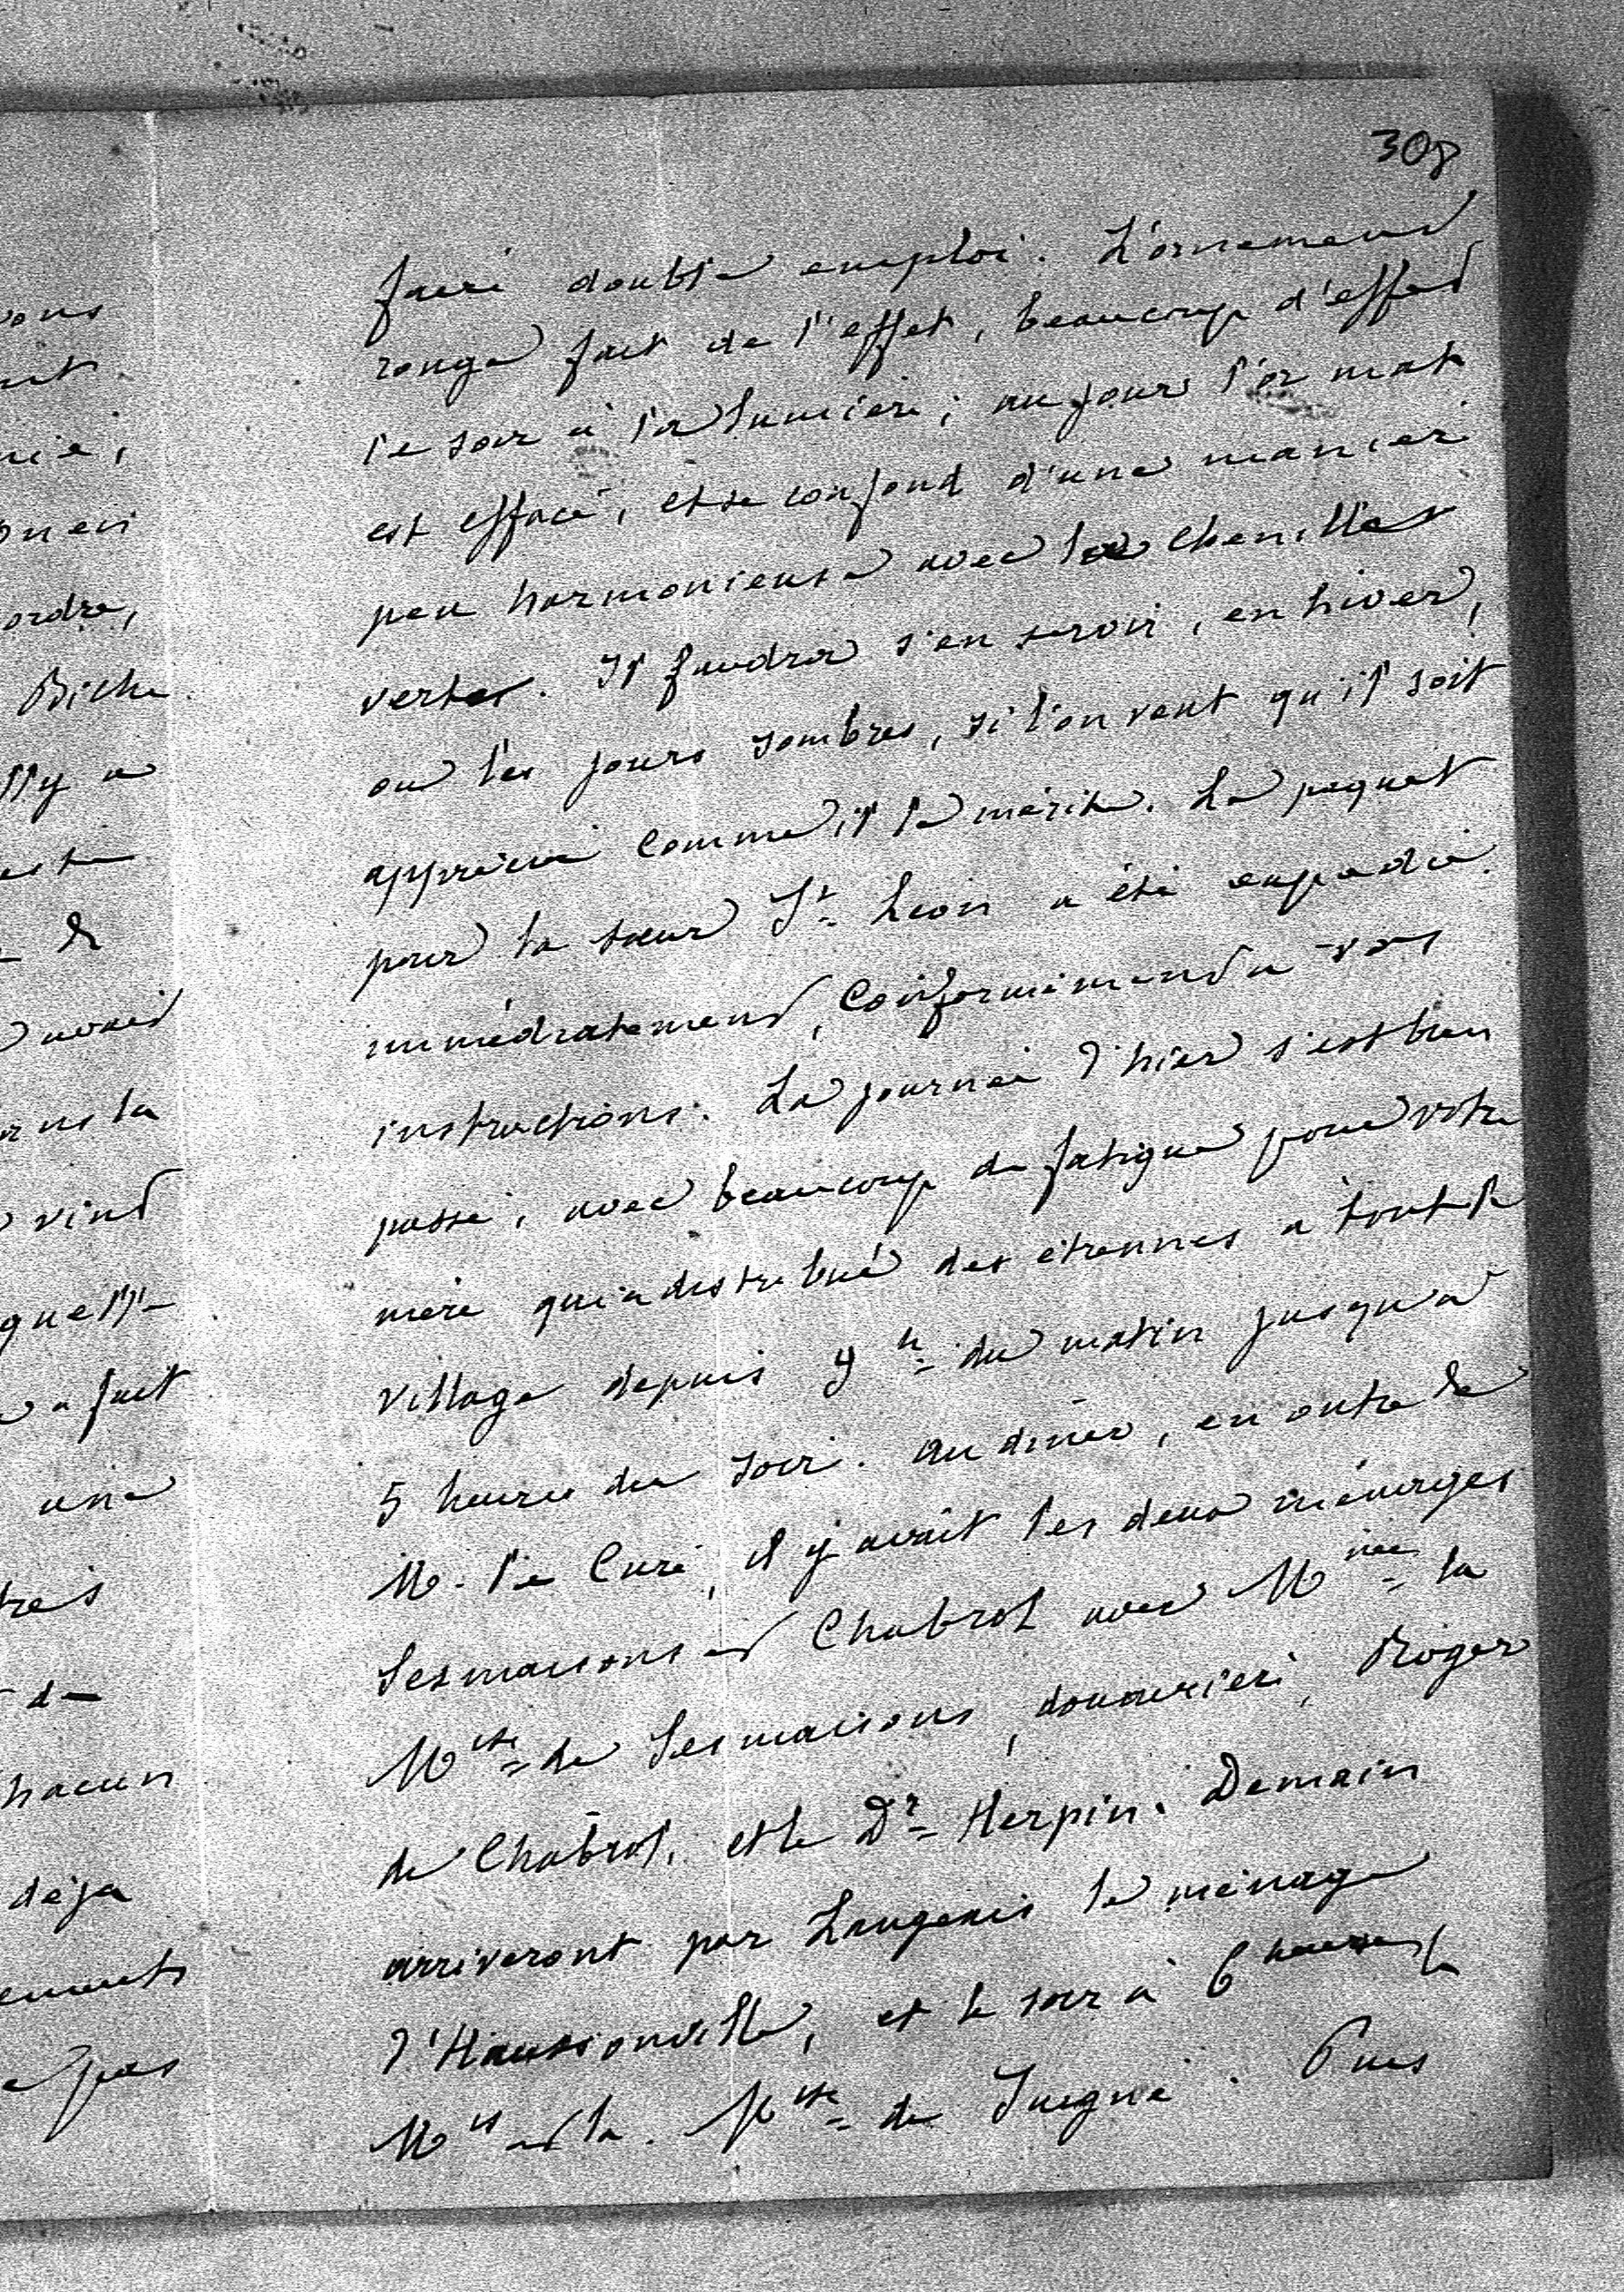 308
faire double emploi. L'ornement
rouge fait de l'effet, beaucoup d'effet
le soir à la lumière; au jour l'or mat
est effacé, et se confond d'une manière
peu harmonieuse avec la chenille
verte. Il faudra s'en servir, en hiver,
ou les jours sombres, si l'on veut qu'il soit
apprécié comme il le mérite. Le paquet
pour la sœur St Léon a été expédié
immédiatement, conformément à vos
instructions. La journée d'hier s'est bien
passé, avec beaucoup de fatigue pour votre
mère qui a distribué des étrennes à tout le
village depuis 9 h du matin jusqu'à
5 heures du soir. Au dîner, en outre de
M. le Curé, il y avait les deux ménages
Sesmaisons et Chabrol avec Mme la
Mise de Sesmaisons, douairière, Roger
de Chabrol, et le Dr Herpin. Demain
arriveront par Langeais le ménage
d'Haussonville, et le soir à 6 heures
Mis et la Mise de Juigné. Puis
ordre,
Biche
lly a
&
avait
vint
a fait
une
de
chacun
déjà
pas